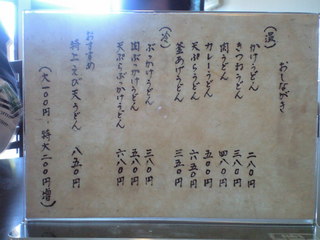 おしながき
(温)
かけうどん 二八〇円
きつねうどん 三八〇円
肉うどん 四八〇円
カレーうどん 五〇〇円
天ぷらうどん 六五〇円
釜あげうどん 三五〇円
(冷)
ぶっかけうどん 三八〇円
肉ぶっかけうどん 五八〇円
天ぷらぶっかけうどん 六八〇円
おすすめ
特上えび天うどん 八五〇円
(大一〇〇円、特大二〇〇円増)